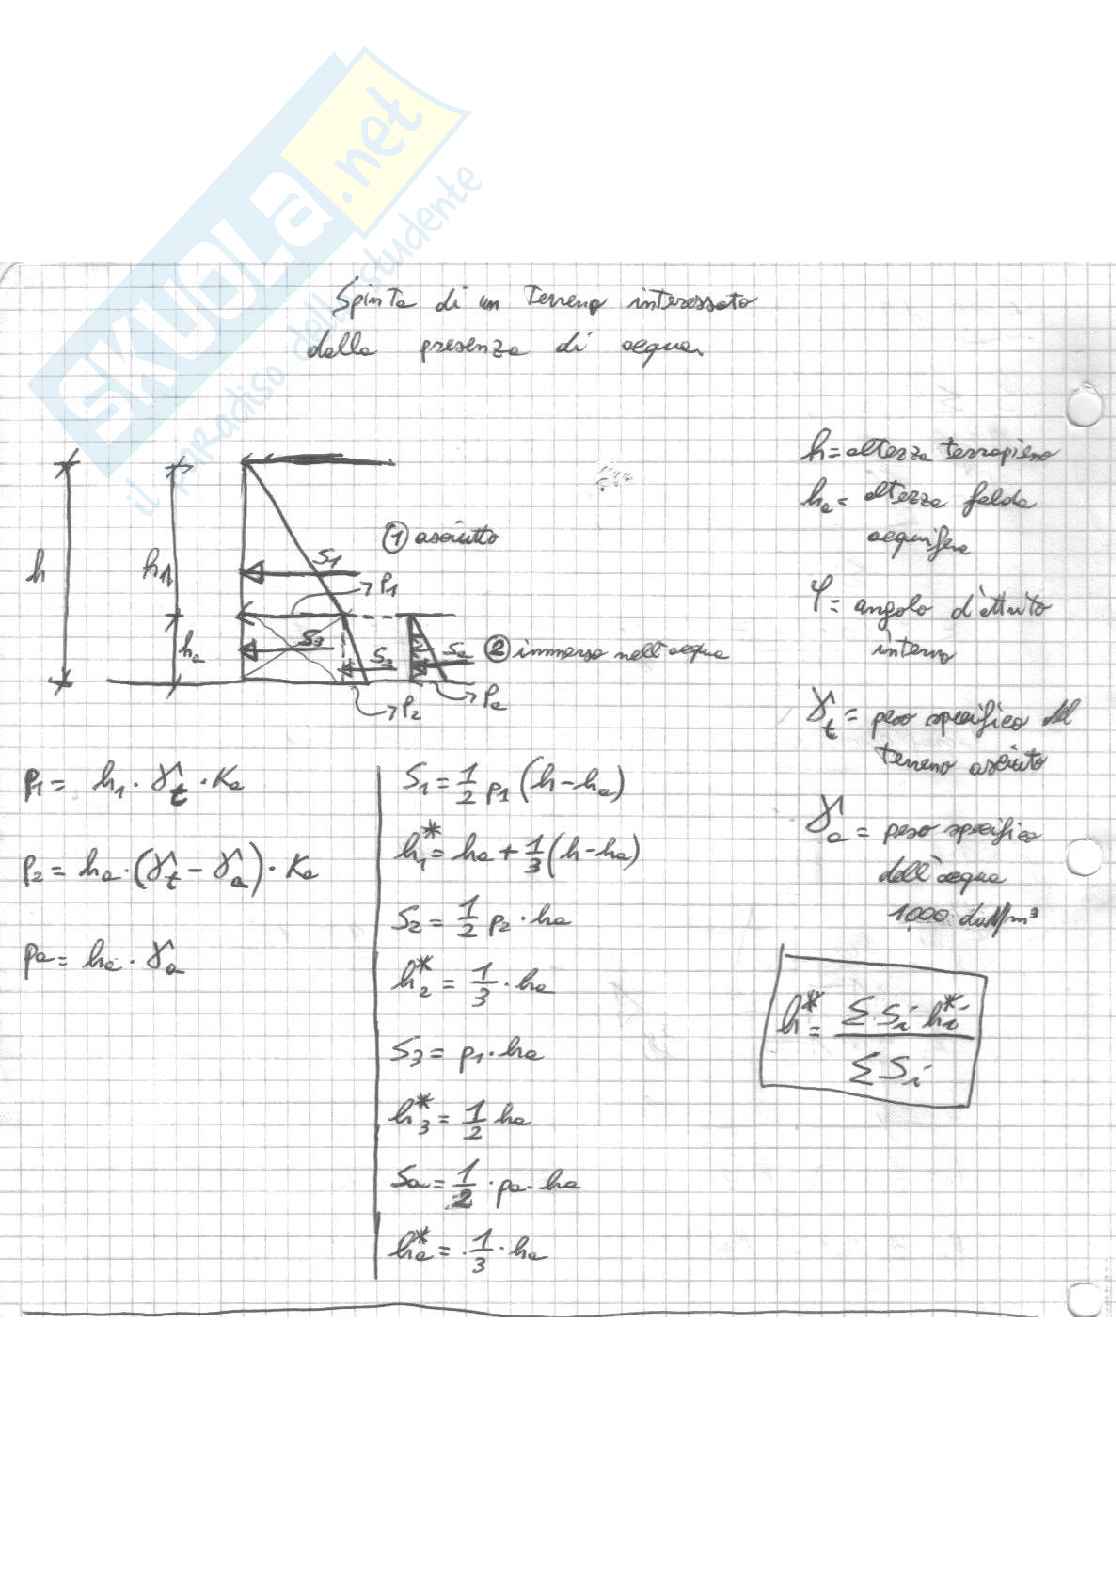 SKUOLA.net
il paradiso dello studente
Spinta di un Terreno interessato
dalla presenza di acqua
h
h1
ha
S1
P1
S3
S2
P2
Sa
Pa
① asciutto
② immerso nell'acqua
h = altezza terrapieno
ha = altezza falda
acquifera
φ = angolo d'attrito
interno
γt = peso specifico del
terreno asciutto
γa = peso specifico
dell'acqua
1000 daN/m³
p1 = h1 · γt · Ka
p2 = ha · (γt - γa) · Ka
pa = ha · γa
S1 = 1/2 p1 (h - ha)
h1* = ha + 1/3 (h - ha)
S2 = 1/2 p2 · ha
h2* = 1/3 · ha
S3 = p1 · ha
h3* = 1/2 ha
Sa = 1/2 · pa · ha
ha* = · 1/3 · ha
h* = Σ Si hi* / Σ Si